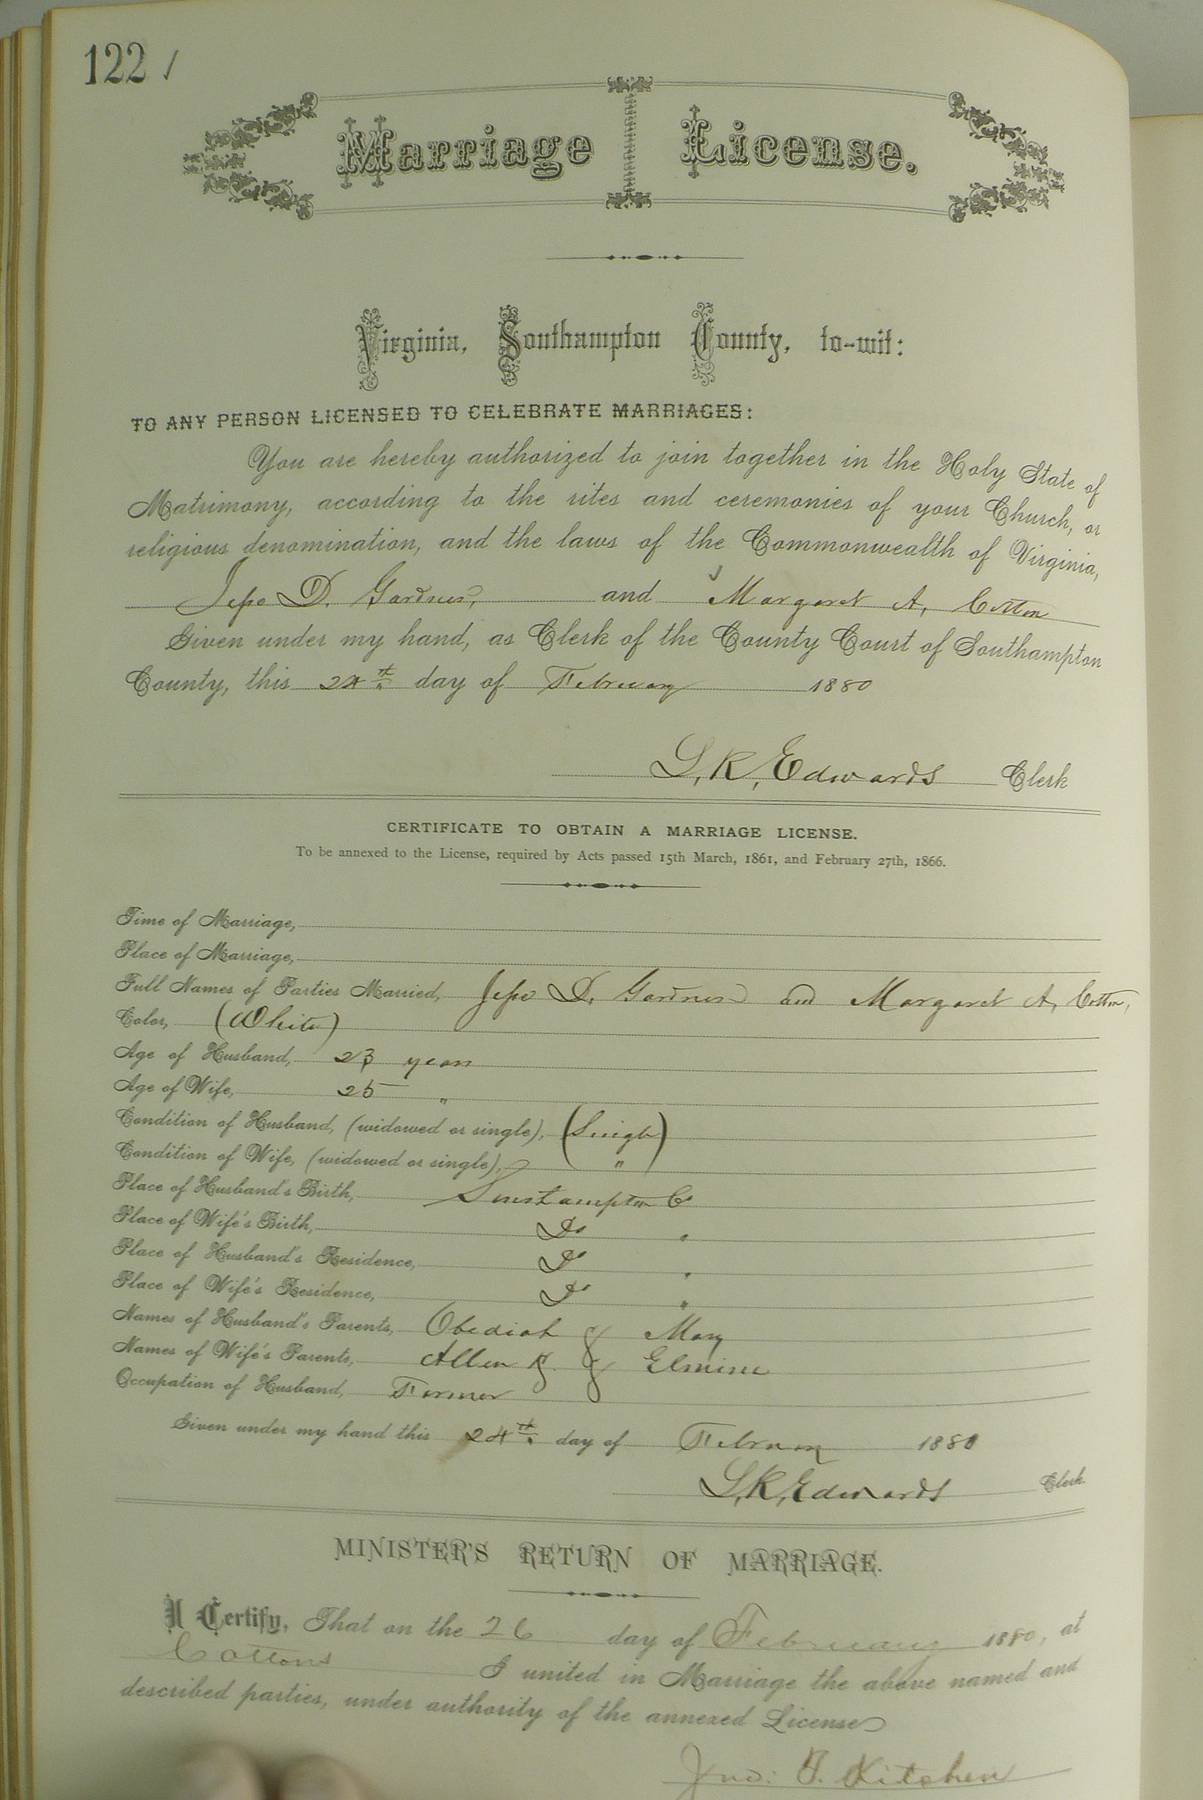 122
Marriage License.
Virginia, Southampton County, to-wit:
TO ANY PERSON LICENSED TO CELEBRATE MARRIAGES:
You are hereby authorized to join together in the Holy State of
Matrimony, according to the rites and ceremonies of your Church, or
religious denomination, and the laws of the Commonwealth of Virginia,
Jesse D. Gardner, and Margaret A. Cotton
Given under my hand, as Clerk of the County Court of Southampton
County, this 24th day of February 1880
L. R. Edwards Clerk
CERTIFICATE TO OBTAIN A MARRIAGE LICENSE.
To be annexed to the License, required by Acts passed 15th March, 1861, and February 27th, 1866.
Time of Marriage,
Place of Marriage,
Full Names of Parties Married, Jesse D. Gardner and Margaret A. Cotton,
Color, (White)
Age of Husband, 23 years
Age of Wife, 25 "
Condition of Husband, (widowed or single), (Single)
Condition of Wife, (widowed or single), "
Place of Husband's Birth, Southampton Co
Place of Wife's Birth, Do "
Place of Husband's Residence, Do "
Place of Wife's Residence, Do "
Names of Husband's Parents, Obediah & Mary
Names of Wife's Parents, Allen & Elmine
Occupation of Husband, Farmer
Given under my hand this 24th day of February 1880
L. R. Edwards Clerk
MINISTER'S RETURN OF MARRIAGE.
I Certify, That on the 26 day of February 1880, at
Cottons I united in Marriage the above named and
described parties, under authority of the annexed License
Jno. Kitchen